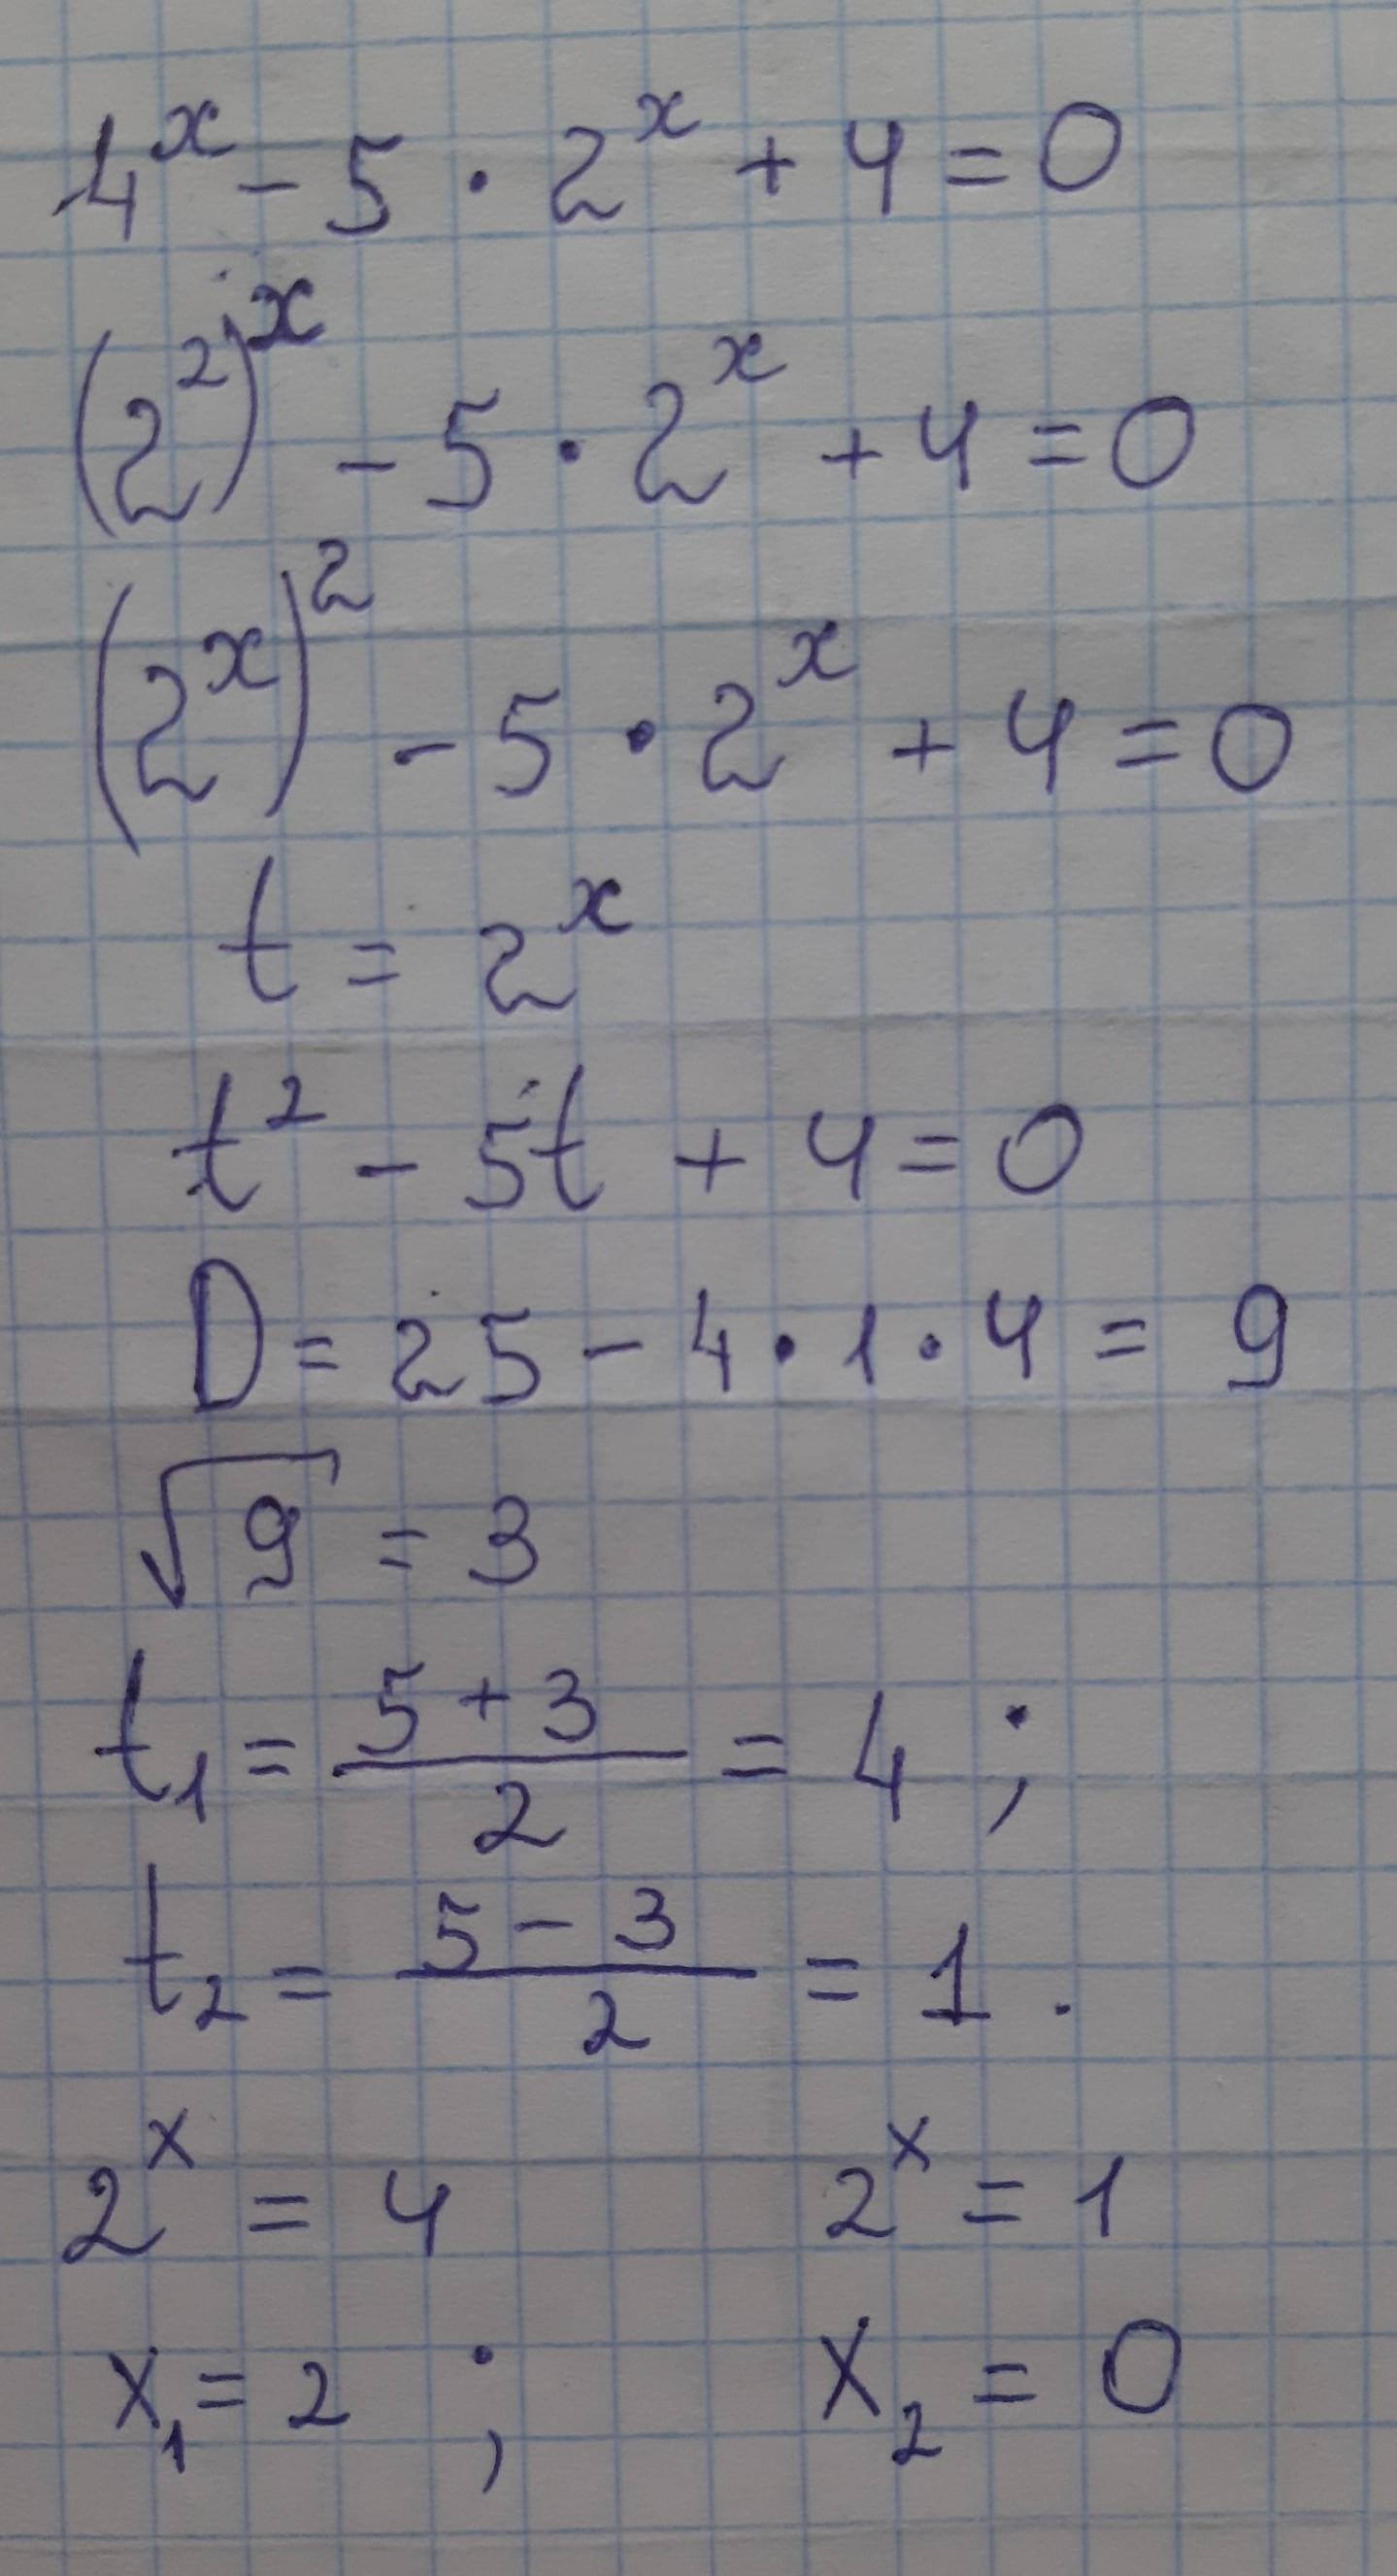 4ˣ - 5 · 2ˣ + 4 = 0
(2²)ˣ - 5 · 2ˣ + 4 = 0
(2ˣ)² - 5 · 2ˣ + 4 = 0
t = 2ˣ
t² - 5t + 4 = 0
D = 25 - 4 · 1 · 4 = 9
√9 = 3
t₁ = (5 + 3)/2 = 4 ;
t₂ = (5 - 3)/2 = 1 .
2ˣ = 4 2ˣ = 1
x₁ = 2 ; x₂ = 0